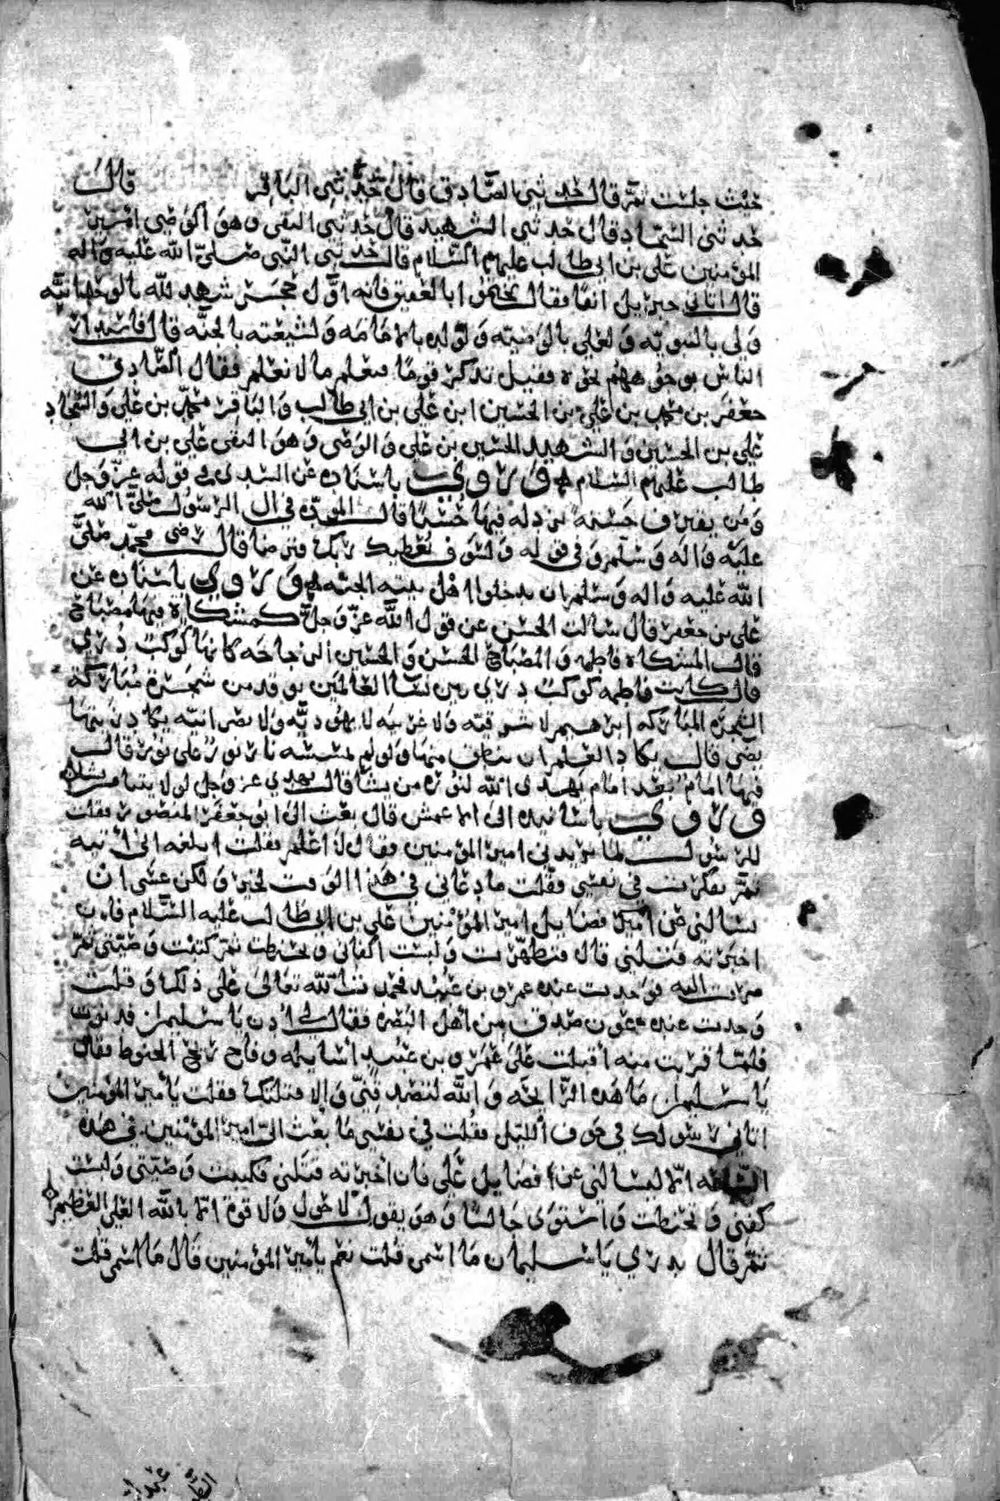 حيث جلست ثم قال حدثني الصادق قال حدثني الباقر قال
حدثني السجاد قال حدثني الشهيد قال حدثني التقي وهو الوصي امير
المؤمنين علي بن ابي طالب عليهم السلام قال حدثني النبي صلى الله عليه واله
قال اتاني جبريل انفا فقال تختموا بالعقيق فانه اول حجر شهد لله بالوحدانية
ولي بالنبوة ولعلي بالوصية ولولده بالامامة ولشيعته بالجنة قال فاستدار
الناس بوجوههم نحوه فقيل تذكر قوما فعلم مالا نعلم فقال الصادق
جعفر بن محمد بن علي بن الحسين ابن علي بن ابي طالب والباقر محمد بن علي والسجاد
علي بن الحسين والشهيد الحسين بن علي والوصي وهو التقي علي بن ابي
طالب عليهم السلام وروى باسناده عن السدي في قوله عز وجل
ومن يقترف حسنة نزد له فيها حسنا قال المودة في ال الرسول صلى الله
عليه واله وسلم وفي قوله ولسوف يعطيك ربك فترضا قال رضى محمد صلى
الله عليه واله وسلم ان يدخلوا اهل بيته الجنة وروى باسناده عن
علي بن جعفر قال سالت الحسن عن قول الله عز وجل كمشكاة فيها مصباح
قال المشكاة فاطمة والمصباح الحسن والحسين الزجاجة كانها كوكب دري
قال كانت فاطمة كوكب دري بين نساء العالمين يوقد من شجرة مباركة
الشجرة المباركة ابرهيم لا شرقية ولا غربية لا يهودية ولا نصرانية يكاد زيتها
يضي قال يكاد العلم ان ينطق منها ولو لم تمسسه نار نور على نور قال
فيها امام بعد امام يهدي الله لنوره من يشا قال يهدي عز وجل لولايتنا من يشا
وروى باسانيده الى الاعمش قال بعث الي ابو جعفر المنصور فقلت
للرسول لما يريدني امير المؤمنين فقال لا اعلم فقلت ابلغه اني اتيه
ثم تفكرت في نفسي فقلت ما دعاني في هذا الوقت لخير ولكن عسى ان
يسالني عن فضايل امير المؤمنين علي بن ابي طالب عليه السلام فان
اخبرته قتلني قال فتطهرت ولبست اكفاني وتحنطت ثم كتبت وصيتي ثم
صرت اليه فوجدت عنده عمرو بن عبيد فحمدت الله تعالى على ذلك وقلت
وجدت عنده عون صدق من اهل البصرة فقال لي ادن يا سليمان فدنوت
فلما قربت منه اقبلت على عمرو بن عبيد اسايله وفاح ريح الحنوط فقال
يا سليمان ما هذه الرايحة والله لتصدقني والا قتلتك فقلت يا امير المؤمنين
اتاني رسولك في جوف الليل فقلت في نفسي ما بعث الي امير المؤمنين في هذه
الساعة الا ليسالني عن فضايل علي فان اخبرته قتلني فكتبت وصيتي ولبست
كفني وتحنطت واستوى جالسا وهو يقول لا حول ولا قوة الا بالله العلي العظيم
ثم قال تدري يا سليمان ما اسمي قلت نعم يا امير المؤمنين قال ما اسمي قلت